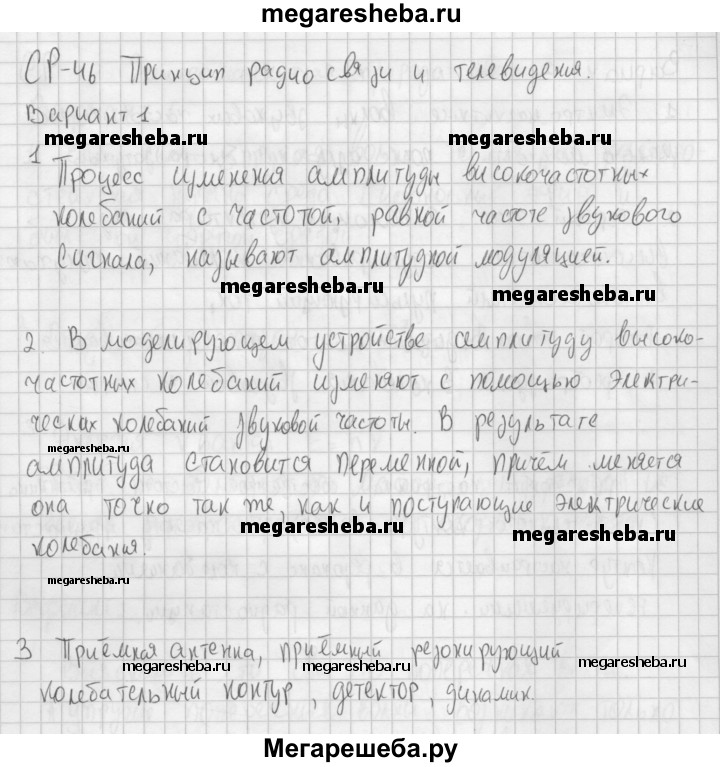 megaresheba.ru
СР-46 Принцип радиосвязи и телевидения.
Вариант 1
megaresheba.ru megaresheba.ru
1 Процесс изменения амплитуды високочастотных
колебаний с частотой, равной частоте звукового
сигнала, называют амплитудной модуляцией.
megaresheba.ru megaresheba.ru
2. В моделирующем устройстве амплитуду высоко-
частотных колебаний изменяют с помощью электри-
ческих колебаний звуковой частоты. В результате
megaresheba.ru
амплитуда становится переменной, причём меняется
она точно так же, как и поступающие электрические
megaresheba.ru megaresheba.ru
колебания.
megaresheba.ru
3 Приёмная антенна, приёмный резонирующий
megaresheba.ru megaresheba.ru megaresheba.ru
колебательный контур, детектор, динамик.
Мегарешеба.ру